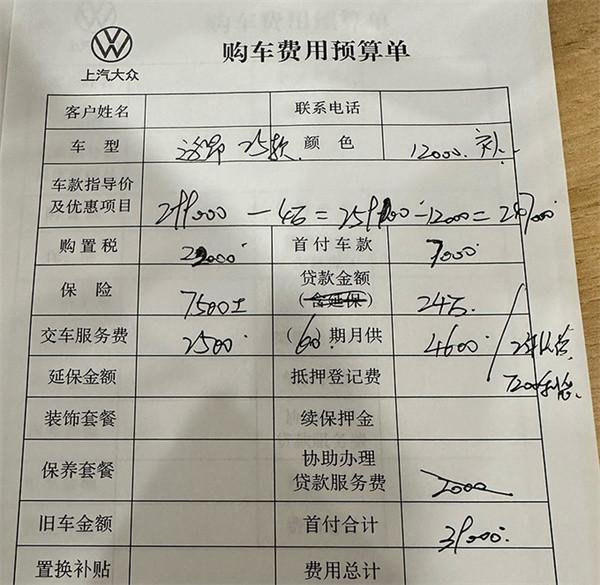 上汽大众
购车费用预算单
客户姓名 联系电话
车型 途昂 25款 颜色 12000.
车款指导价及优惠项目 299000 - 4万 = 259000 - 12000 = 247000
购置税 22000 首付车款 7000
保险 7500± 贷款金额(含延保) 24万.
交车服务费 2500 (60)期月供 4600 / 2年
延保金额 抵押登记费 7200利息
装饰套餐 续保押金
保养套餐 协助办理贷款服务费 2000
旧车金额 首付合计 39000
置换补贴 费用总计